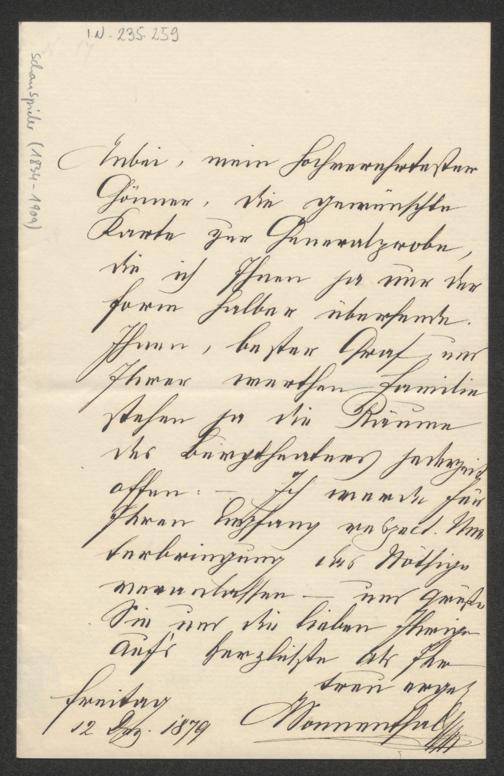 I.N. 235.259
Schauspieler (1834-1909)
Anbei, mein hochverehrtester
Gönner, die gewünschte
Karte zur Generalprobe,
die ich Ihnen ja nur der
Form halber übersende.
Ihnen, bester Graf und
Ihrer werthen Familie
stehen ja die Räume
des Burgtheaters jederzeit
offen. — Ich werde für
Ihren Empfang respect. Un-
terbringung das Nöthige
veranlassen — und grüße
Sie und die lieben Ihrigen
auf's herzlichste als Ihr
treu erge
Sonnenthal
Freitag
12 Dez. 1879